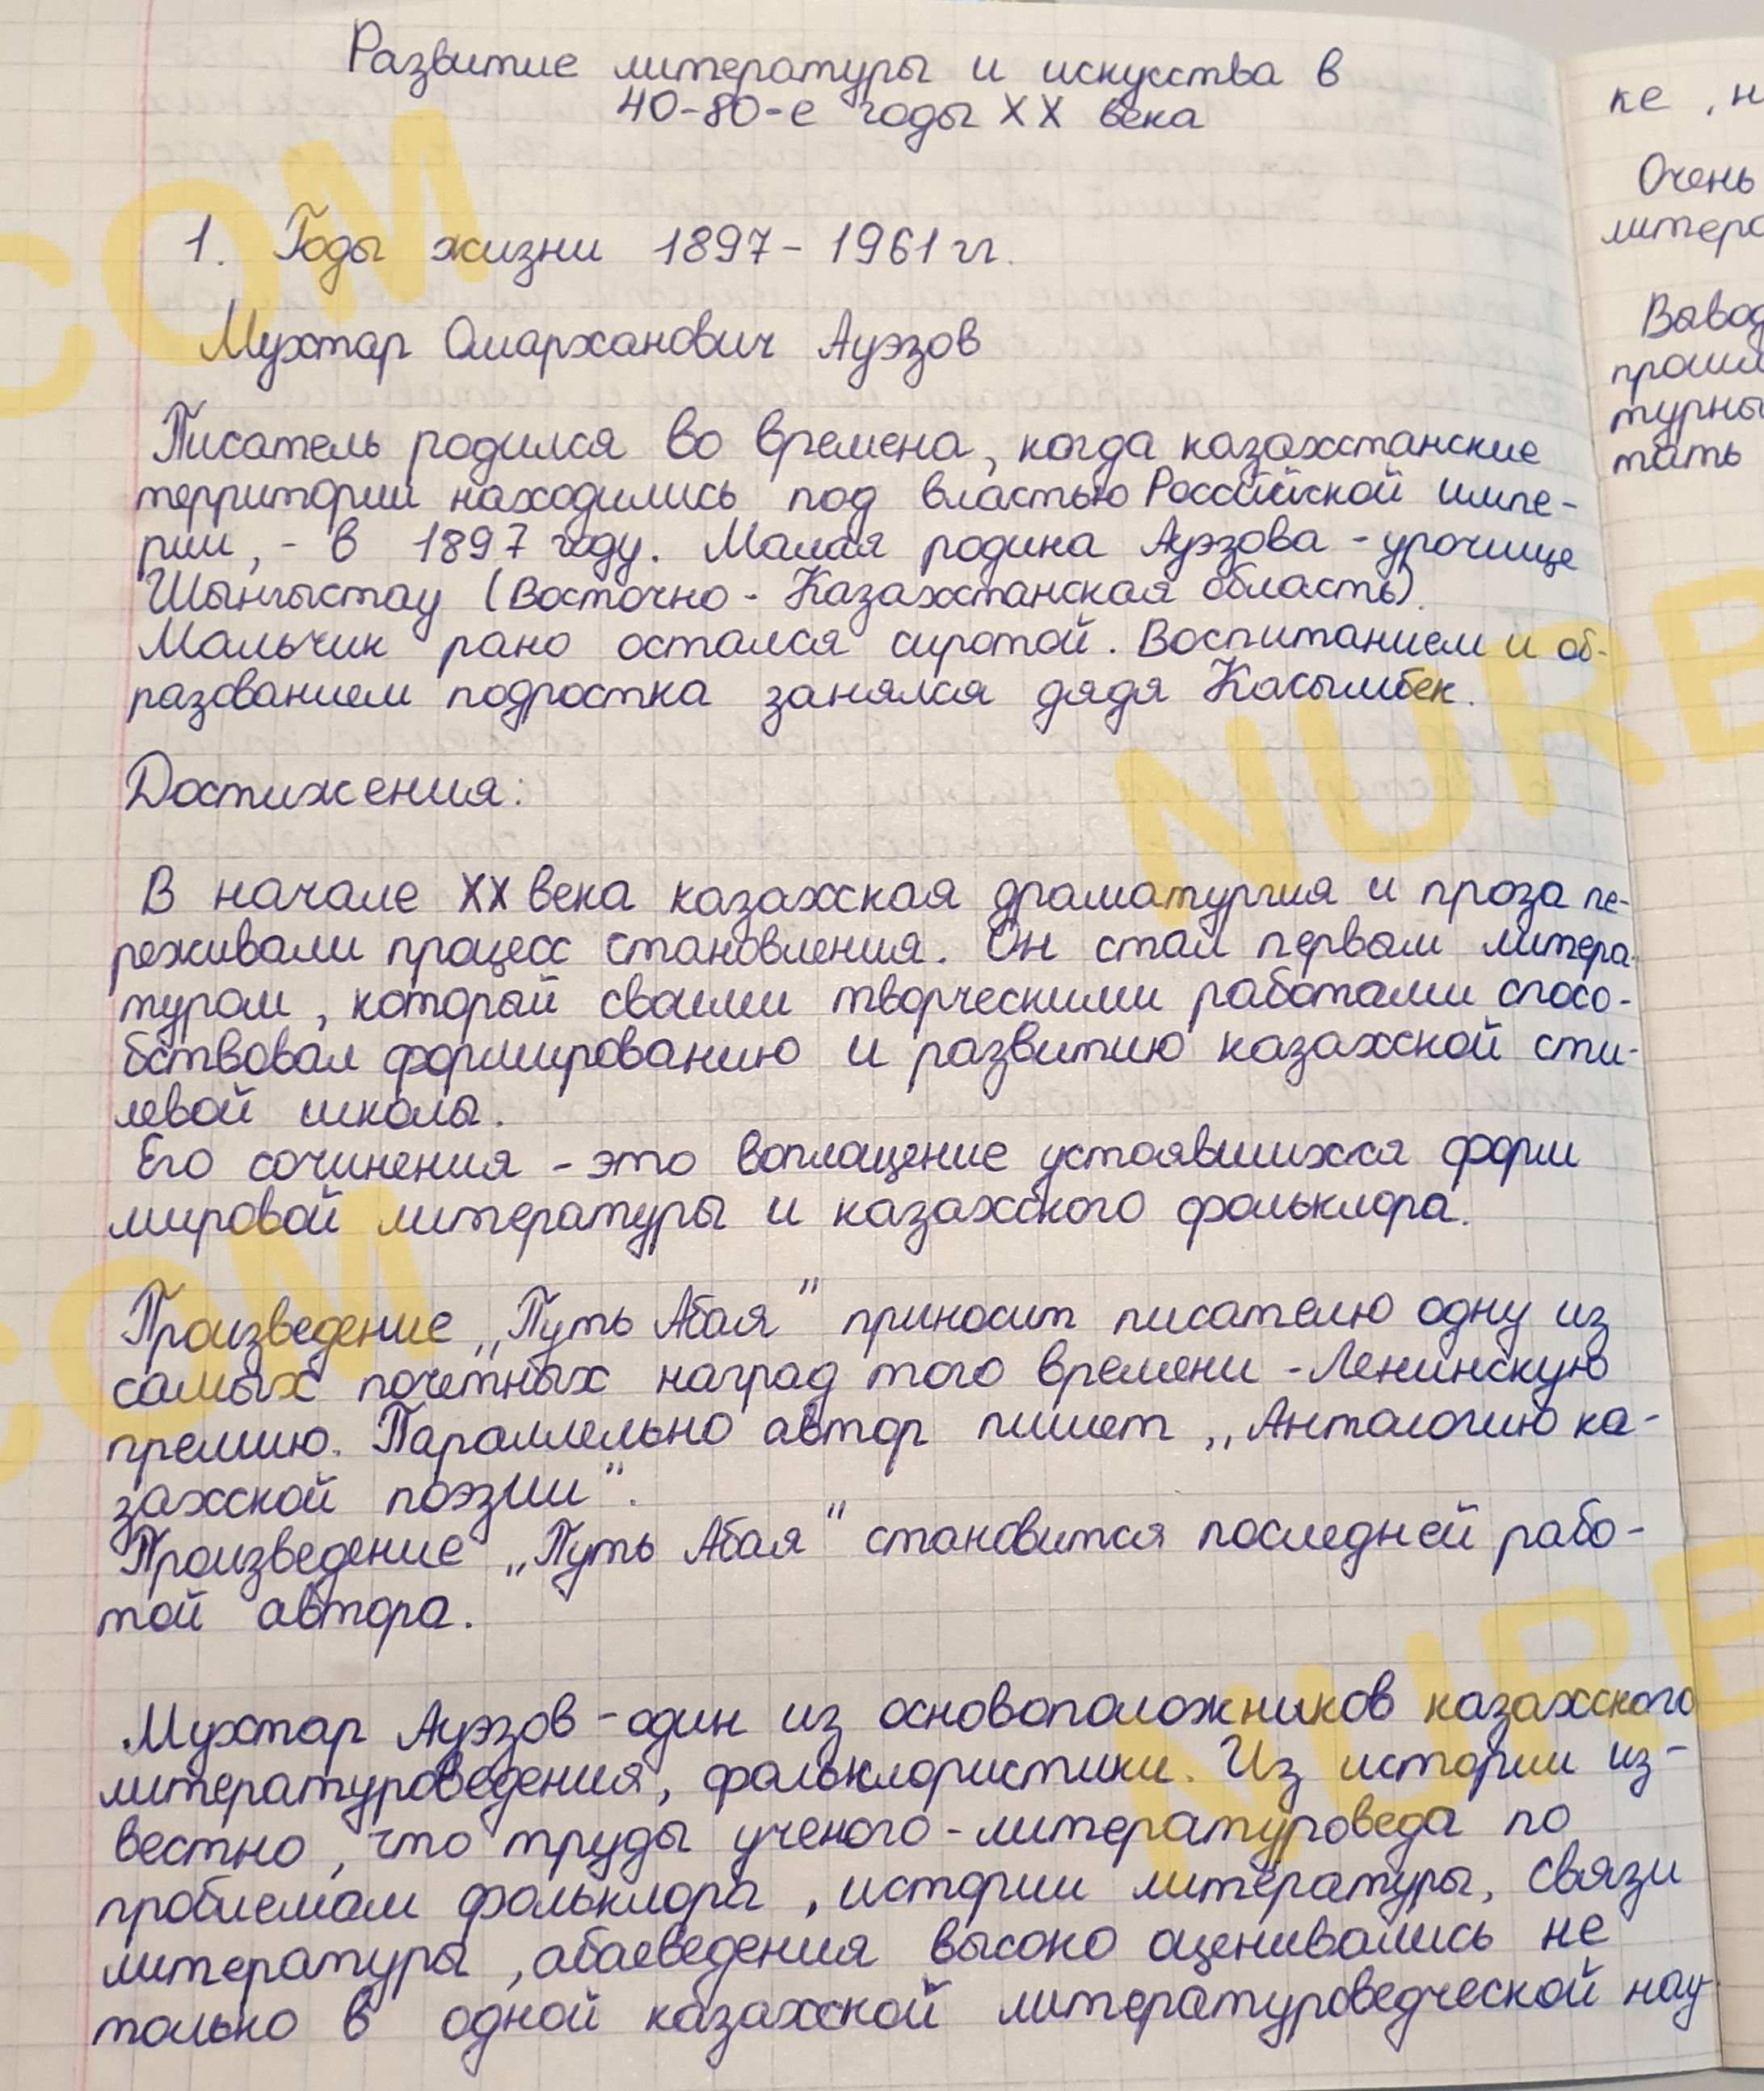 Развитие литературы и искусства в
40-80-е годы XX века
1. Годы жизни 1897 - 1961 гг.
Мухтар Омарханович Ауэзов
Писатель родился во времена, когда казахстанские
территории находились под властью Российской импе-
рии, - в 1897 году. Малая родина Ауэзова - урочище
Шынгыстау (Восточно - Казахстанская область).
Мальчик рано остался сиротой. Воспитанием и об-
разованием подростка занялся дядя Касымбек.
Достижения:
В начале XX века казахская драматургия и проза пе-
реживали процесс становления. Он стал первым литера-
туром, который своими творческими работами спосо-
бствовал формированию и развитию казахской сти-
левой школы.
Его сочинения - это воплощение устоявшихся форм
мировой литературы и казахского фольклора.
Произведение „Путь Абая" приносит писателю одну из
самых почетных наград того времени - Ленинскую
премию. Параллельно автор пишет „Антологию ка-
захской поэзии".
Произведение „Путь Абая" становится последней рабо-
той автора.
Мухтар Ауэзов - один из основоположников казахского
литературоведения, фольклористики. Из истории из-
вестно, что труды ученого - литературоведа по
проблемам фольклора, истории литературы, связи
литературы, абаеведения высоко оценивались не
только в одной казахской литературоведческой нау
ке, н
Очень
литера
Вывод
прошл
турны
тать
COM
NURB
COM
NURB